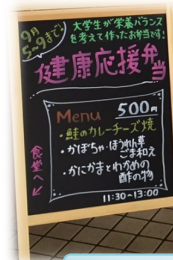 9月
5〜9まで!
大学生が栄養バランス
を考えて作ったお弁当です!
健康応援弁当
Menu 500円
・鮭のカレーチーズ焼
・かぼちゃ・ほうれん草
ごま和え
・かにかまとわかめの
酢の物
11:30~13:00
食堂へ↙